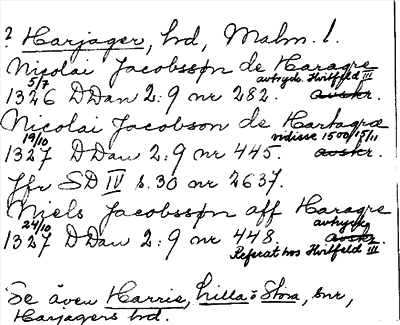 ? Harjager, hd, Malm. l.
Nicolai Jacobsson de Haragre
5/7 avtryck. Hvitfeld III
1326 DDan 2:9 nr 282. avskr.
Nicolai Jacobson de Hartagræ
19/10 vidisse 1500 15/11
1327 DDan 2:9 nr 445. avskr.
Jfr SD IV s. 30 nr 2637.
Niels Jacobsson aff Haragre
24/10 avtryck
1327 DDan 2:9 nr 448. avskr.
Referat hos Hvitfeld III
Se även Harrie, Lilla o Stora, snr,
Harjagers hd.